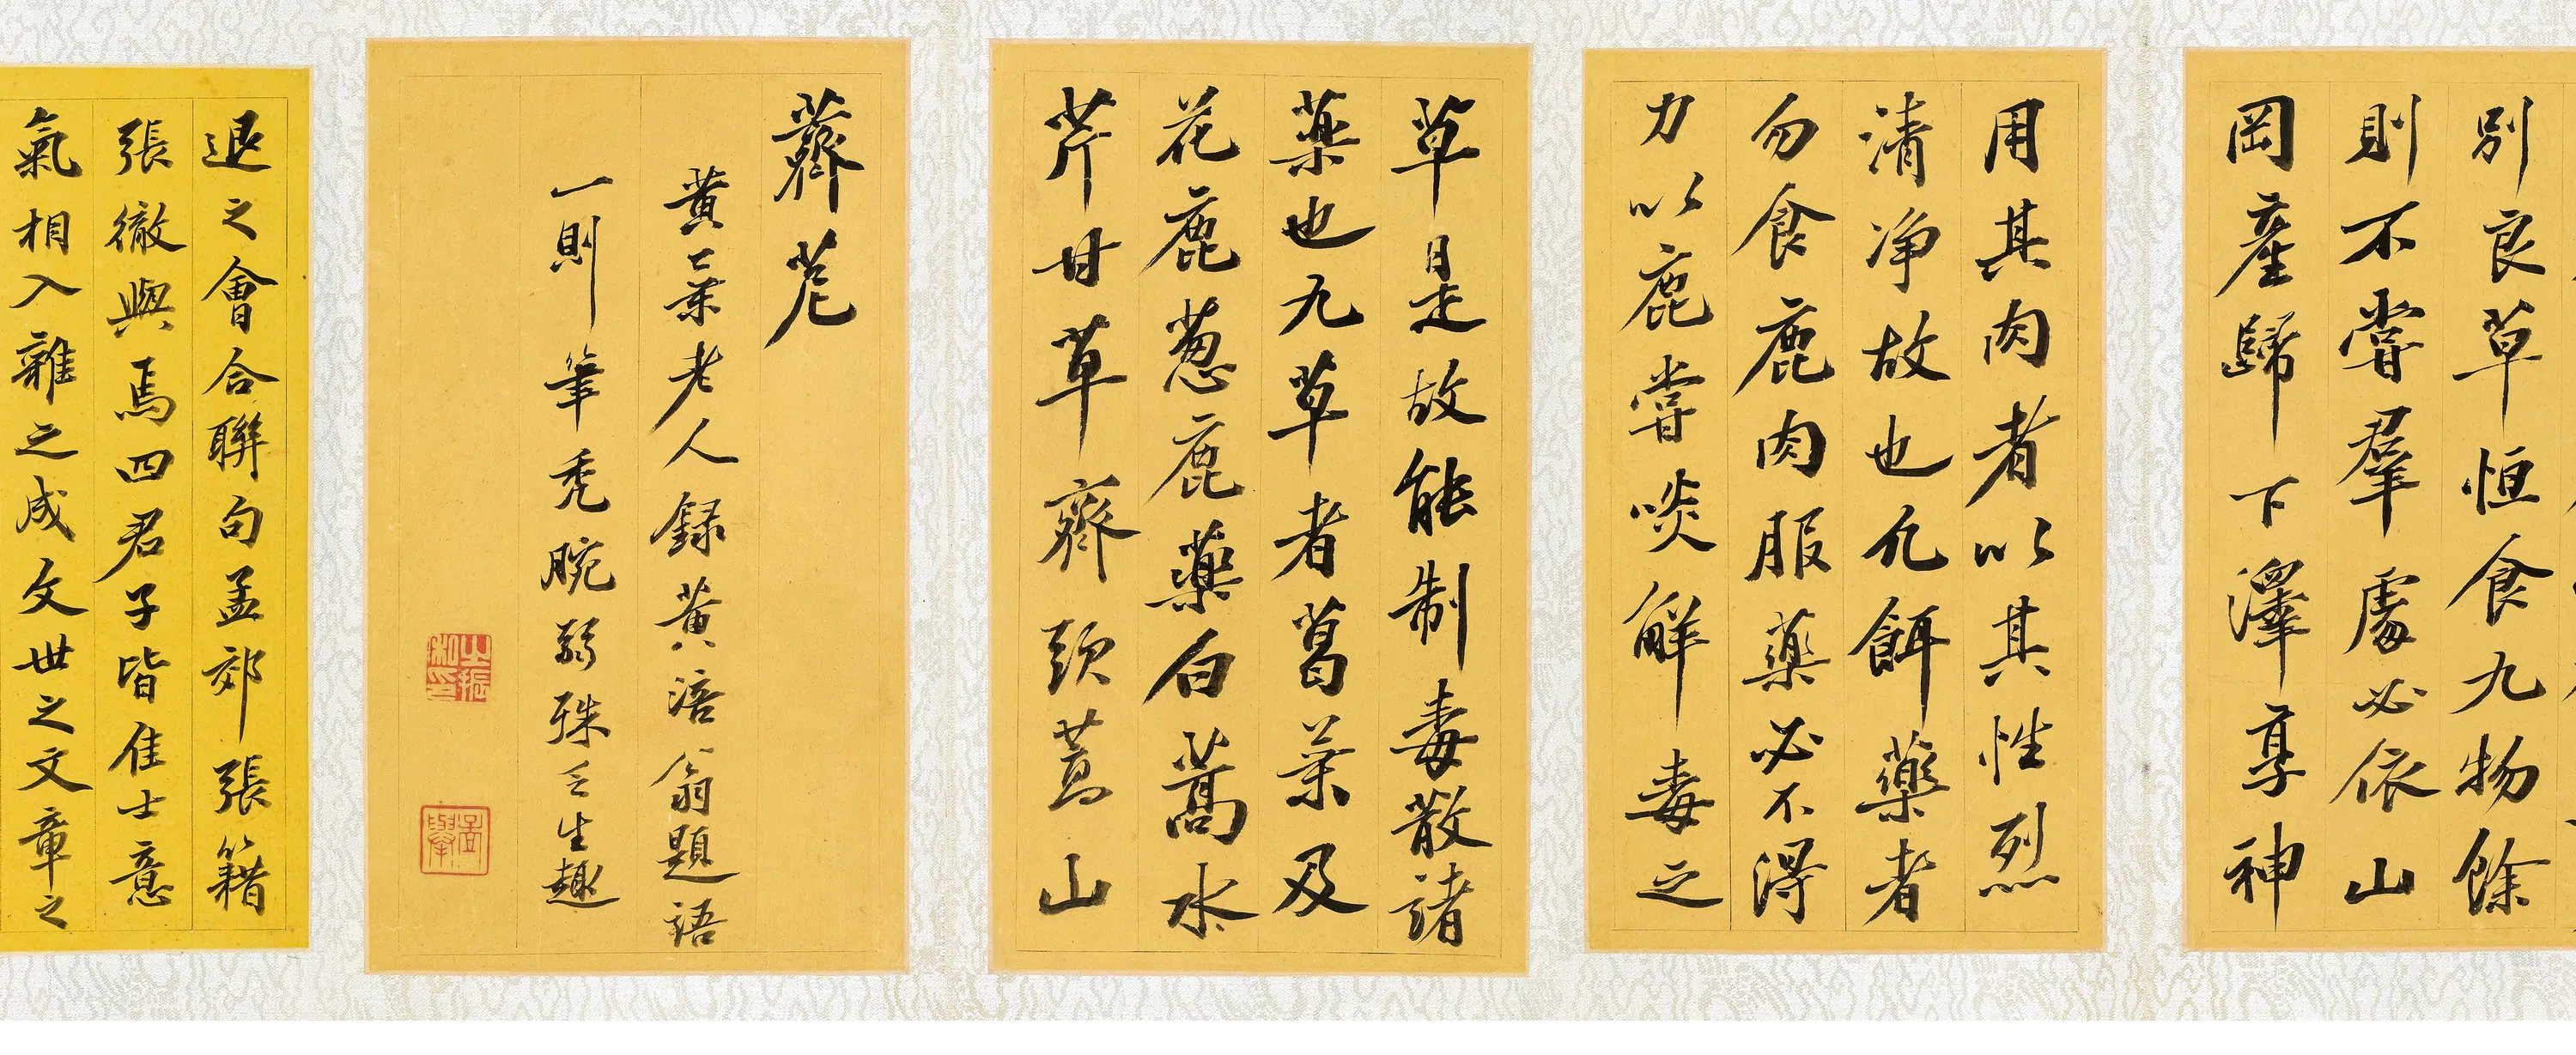 別良草恒食九物餘
則不嘗羣處必依山
岡產歸下澤享神
用其肉者以其性烈
清净故也凢餌藥者
勿食鹿肉服藥必不得
力以鹿嘗啖解毒之
草是故能制毒散諸
藥也九草者葛葉及
花鹿葱鹿藥白蒿水
芹甘草齊頭蒿山
薺苨
黃葉老人録黃涪翁題語
一則筆禿腕弱殊乏生趣
退之會合聯句孟郊張籍
張徹與焉四君子皆佳士意
氣相入雜之成文世之文章之